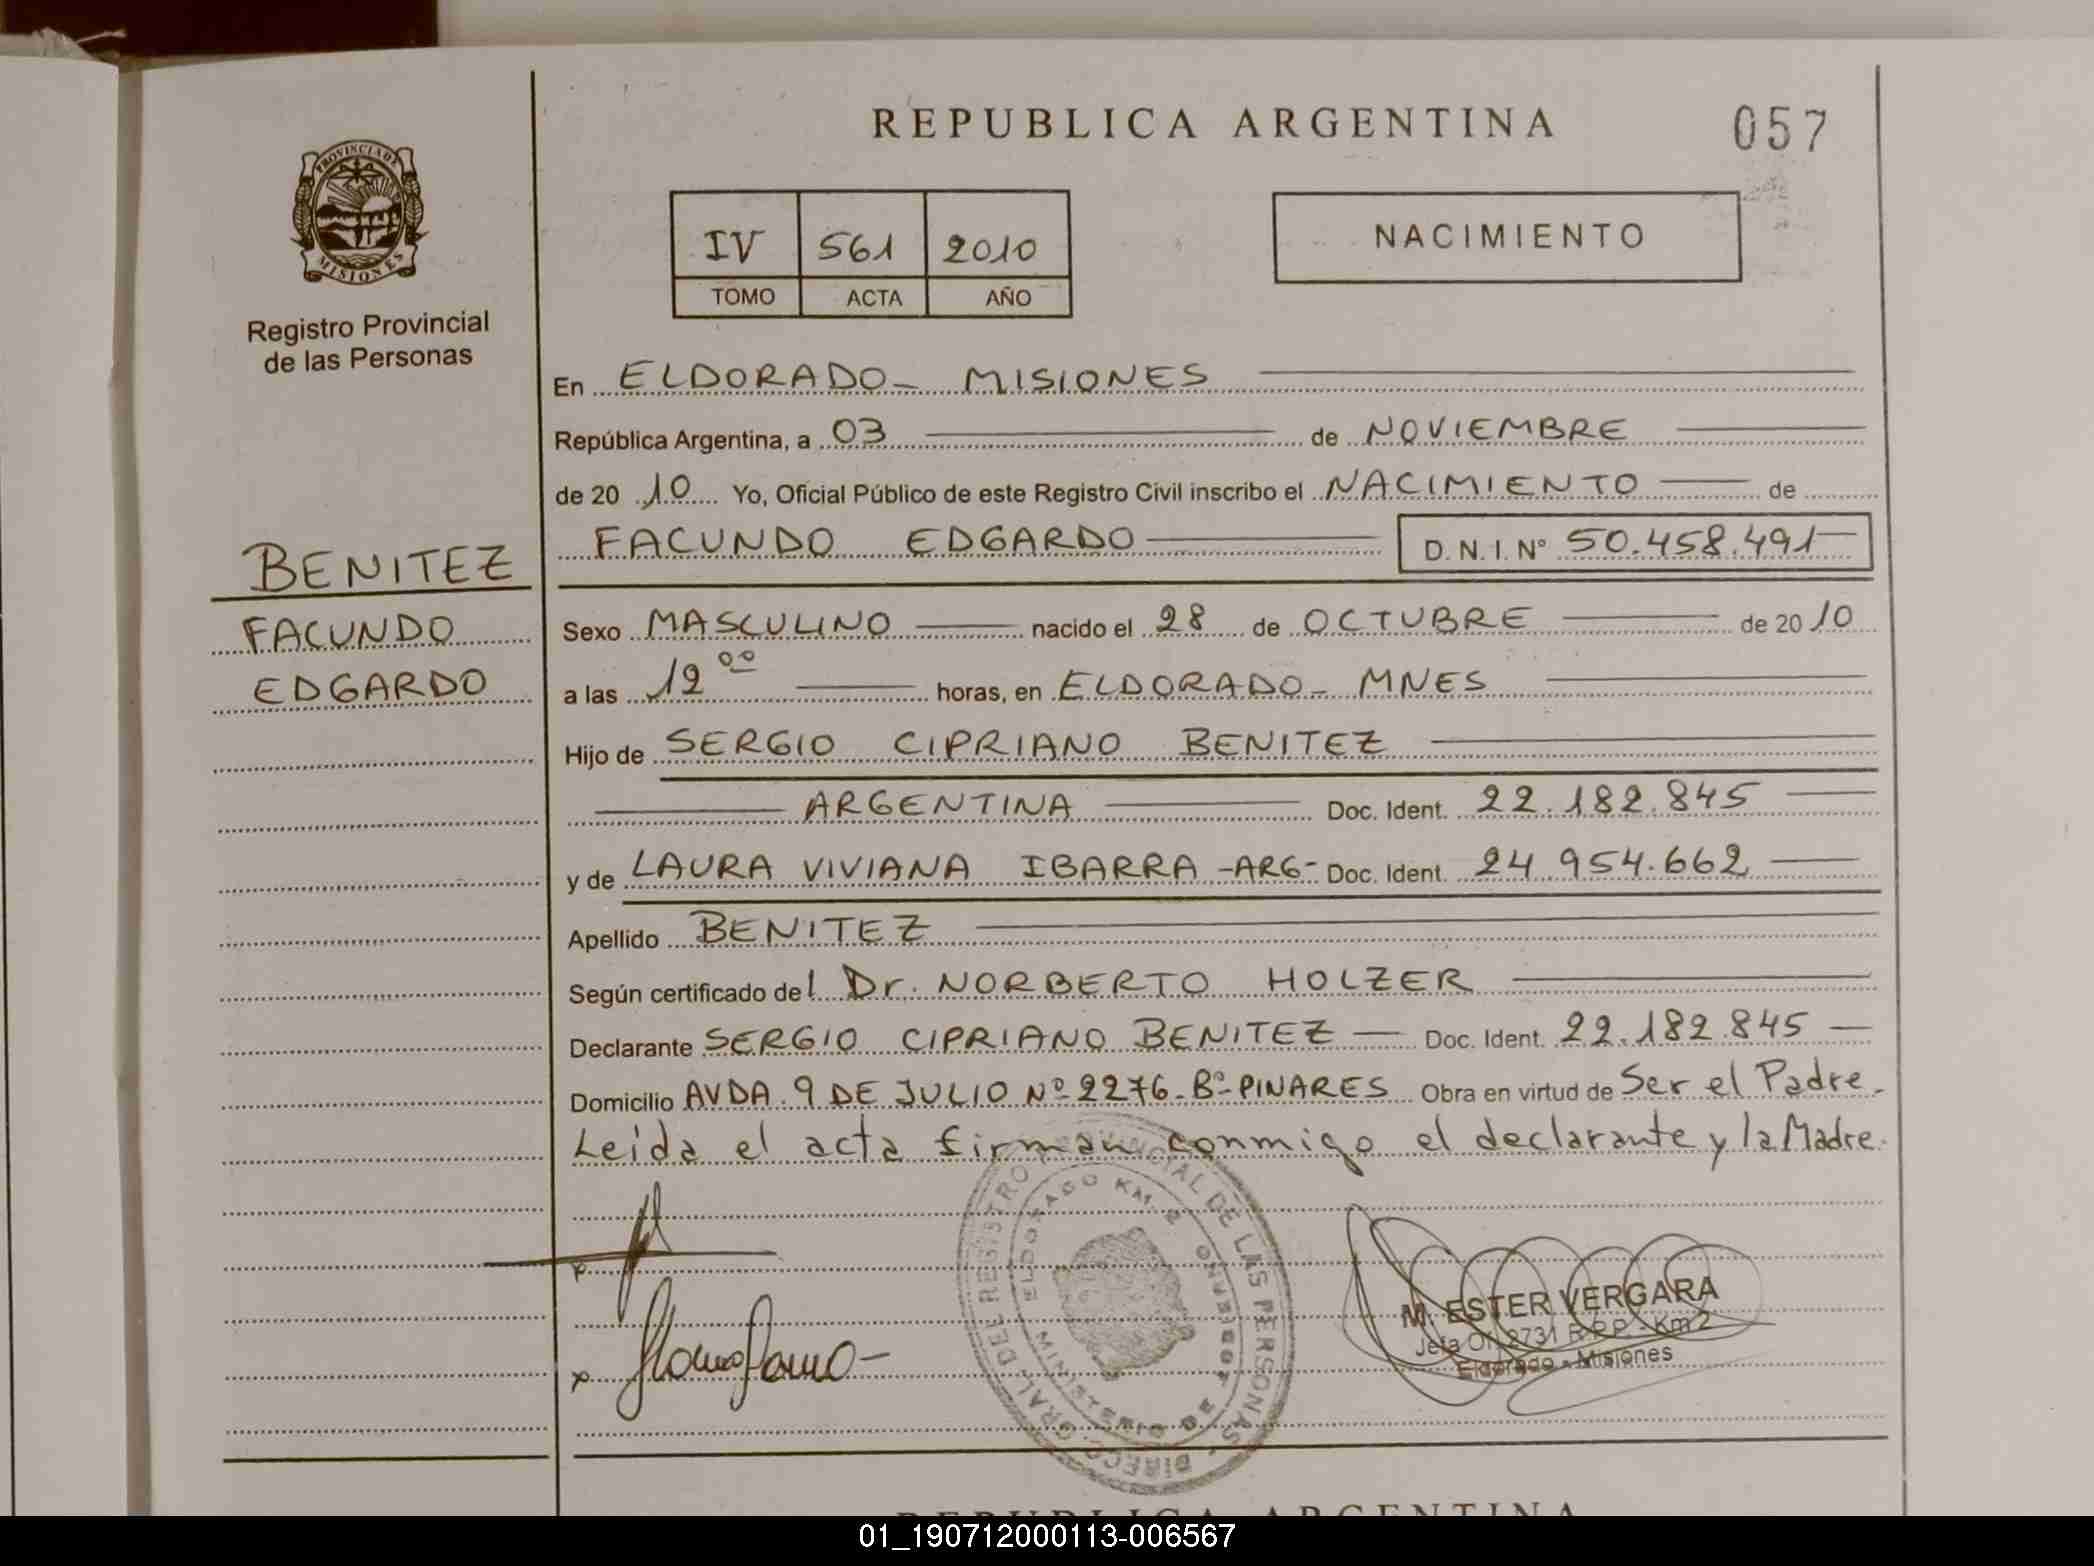 REPUBLICA ARGENTINA
057
PROVINCIA DE
MISIONES
Registro Provincial
de las Personas
IV 561 2010
TOMO ACTA AÑO
NACIMIENTO
En ELDORADO - MISIONES
República Argentina, a 03 de NOVIEMBRE
de 20 10 Yo, Oficial Público de este Registro Civil inscribo el NACIMIENTO de
FACUNDO EDGARDO D.N.I. Nº 50.458.491
BENITEZ
FACUNDO
EDGARDO
Sexo MASCULINO nacido el 28 de OCTUBRE de 20 10
a las 12 00 horas, en ELDORADO - MNES
Hijo de SERGIO CIPRIANO BENITEZ
ARGENTINA Doc. Ident. 22.182.845
y de LAURA VIVIANA IBARRA -ARG- Doc. Ident. 24.954.662
Apellido BENITEZ
Según certificado del Dr. NORBERTO HOLZER
Declarante SERGIO CIPRIANO BENITEZ Doc. Ident. 22.182.845
Domicilio AVDA 9 DE JULIO Nº 2276 - Bº PINARES Obra en virtud de Ser el Padre.
Leida el acta firman conmigo el declarante y la Madre.
DIRECC. GRAL. DEL REGISTRO PROVINCIAL DE LAS PERSONAS
ELDORADO KM. 2
MINISTERIO DE GOBIERNO
M. ESTER VERGARA
Jefa Of. 2731 R.P.P. - Km 2
Eldorado - Misiones
REPUBLICA ARGENTINA
01_190712000113-006567